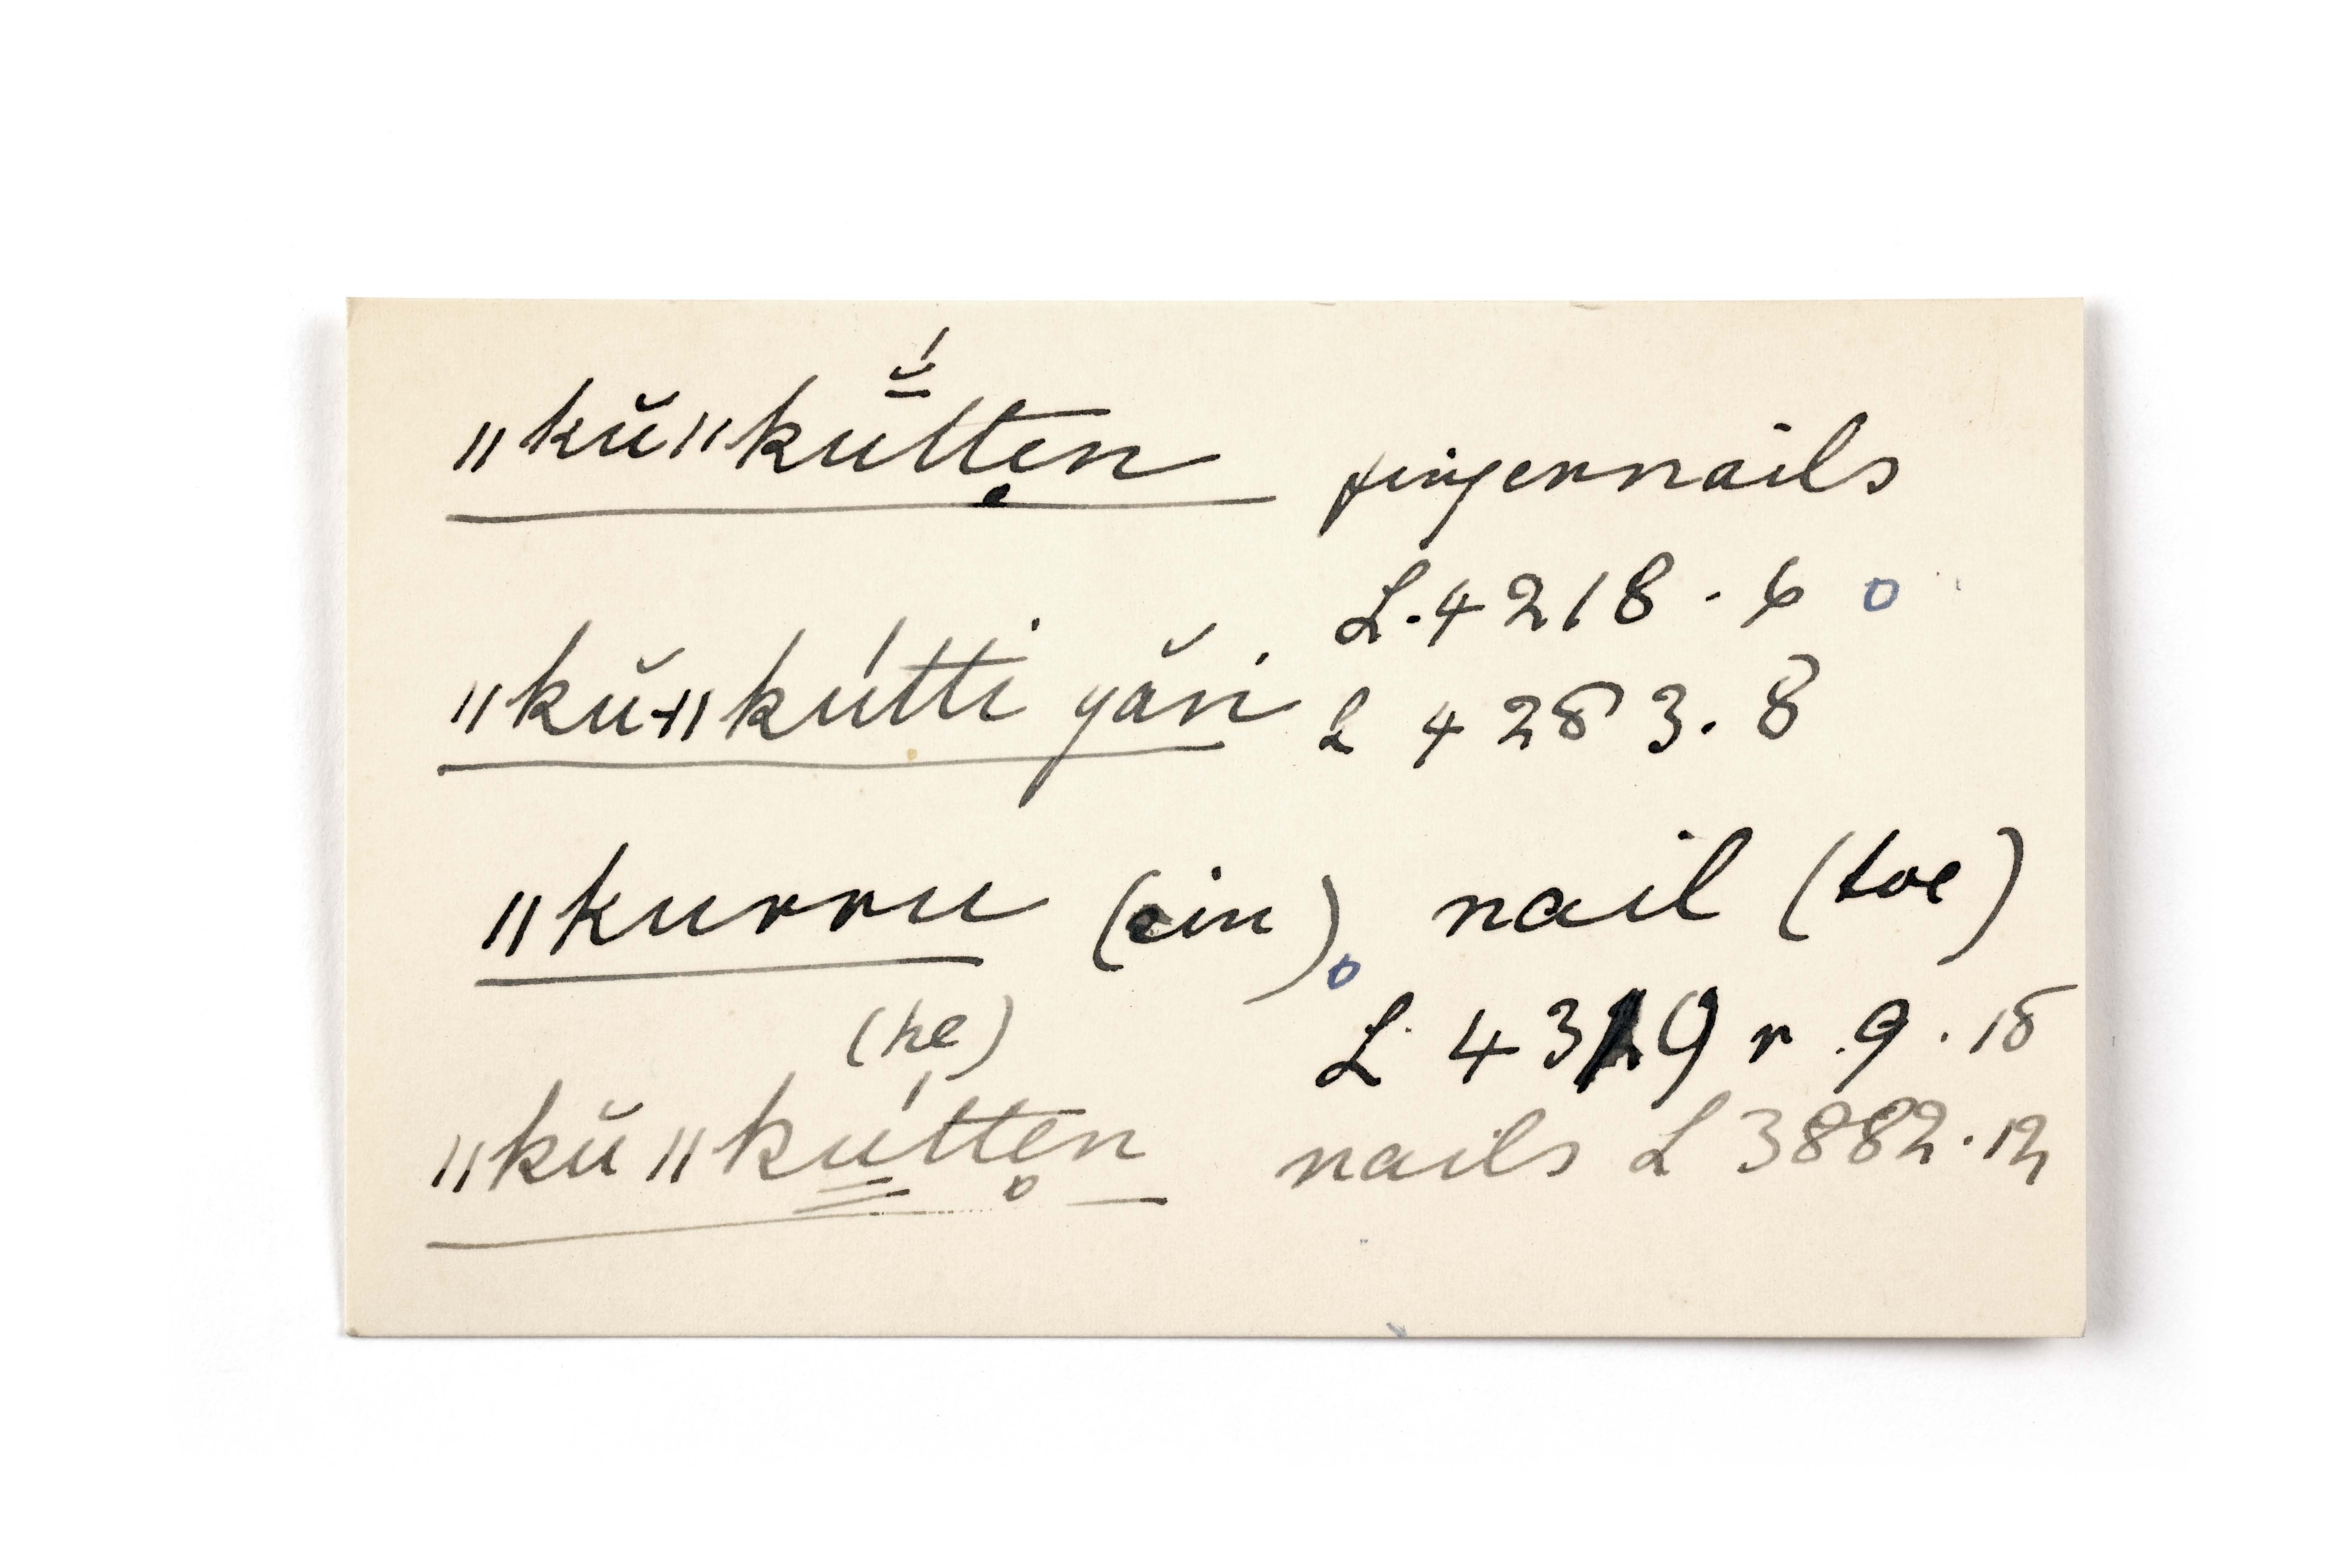 "kŭ"kŭ́tten̥ fingernails
L. 4218 . 6 o
"kŭ-"kútti yắri L 4253. 8
"kurru (ein)o nail (toe)
(he) L 43 9 r . 9 . 15
"kŭ"kútte̥n nails L 3882 . 12